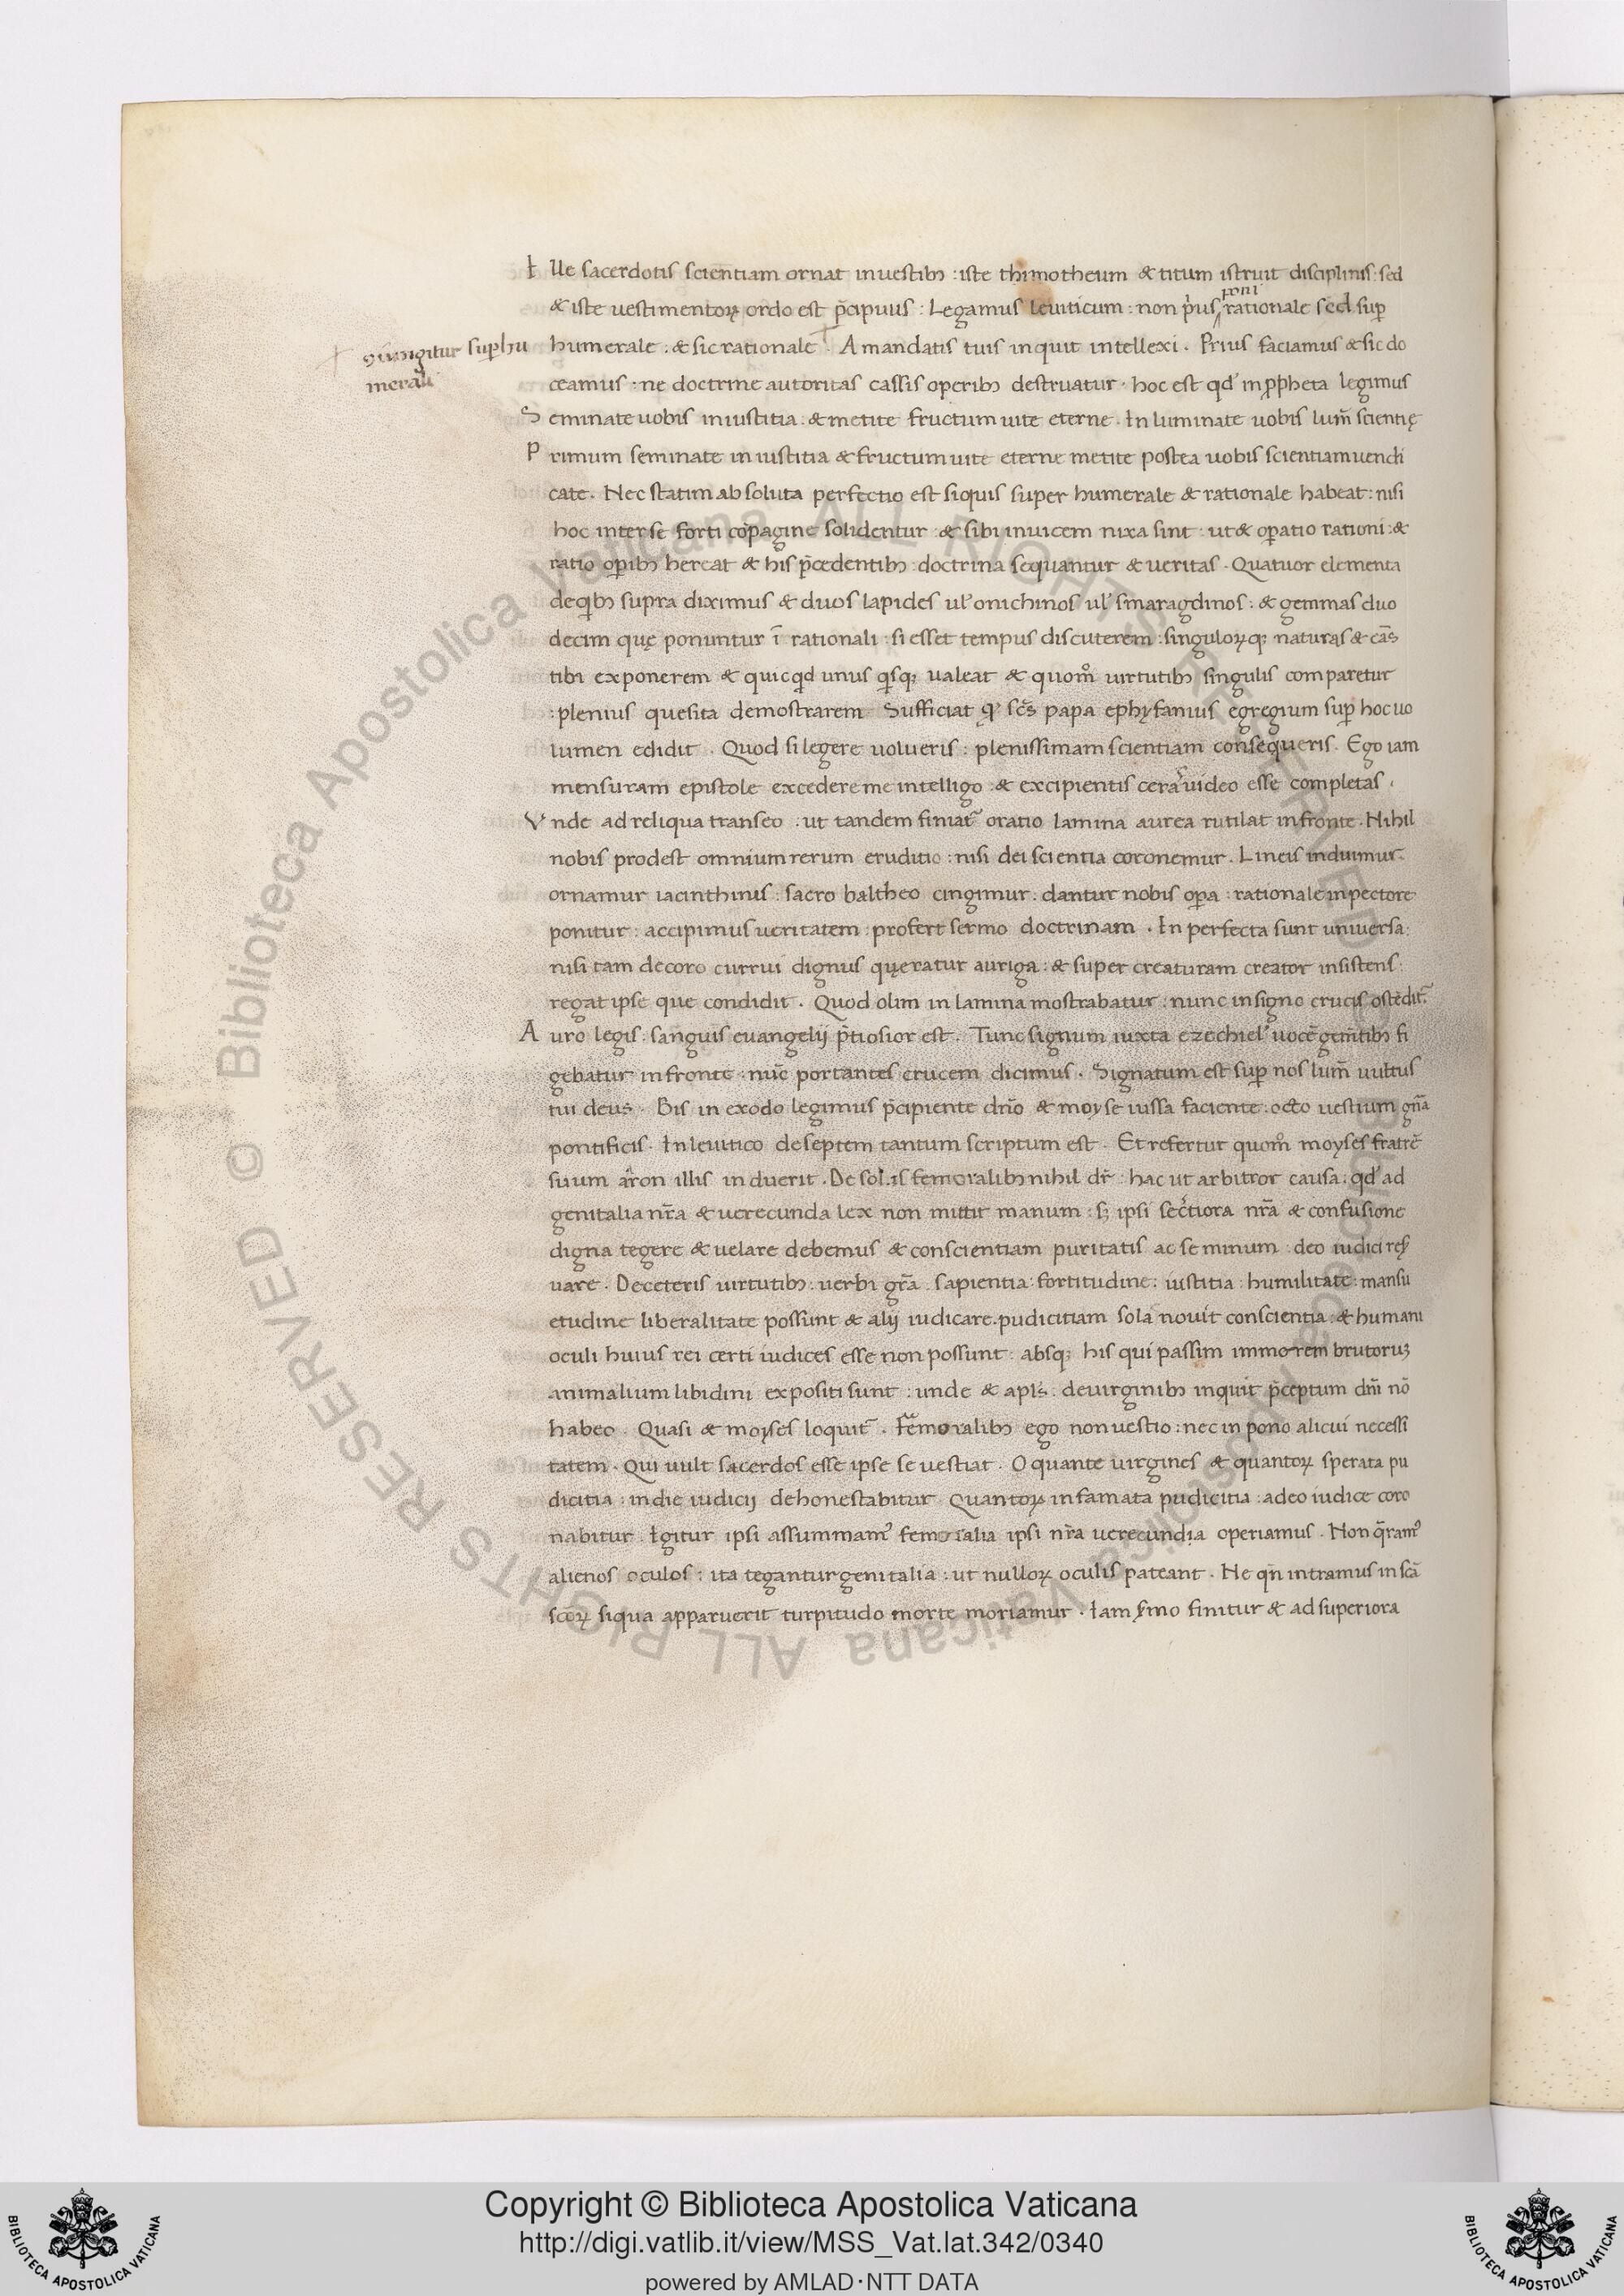 Ille sacerdotis scientiam ornat inuestibꝫ : iste thimotheum & titum istruit disciplinis : sed
& iste uestimentoꝝ ordo est p̄cipuus : Legamus leuiticum : non p̍us rationale sed suꝑ
poni
humerale . & sic rationale . A mandatis tuis inquit intellexi . Prius faciamus & sic do
giungitur suꝑhu
merali
ceamus : ne doctrine autoritas cassis oꝑibꝫ destruatur . hoc est qd̓ in ꝓpheta legimus
Seminate uobis iniustitia . & metite fructum uite eterne . In luminate uobis lum̄ scientię
Primum seminate in iustitia & fructum uite eterne metite postea uobis scientiam uendi
cate . Nec statim absoluta perfectio est siquis super humerale & rationale habeat : nisi
hoc inter se forti cōpagine solidentur : & sibi inuicem nixa sint : ut & oꝑatio rationi : &
ratio oꝑibꝫ hereat & his p̄cedentibꝫ : doctrina sequantur & ueritas . Quatuor elementa
de qͥbꝫ supra diximus & duos lapides ul̓ onichinos ul̓ smaragdinos : & gemmas duo
decim quę ponuntur ī rationali : si esset tempus discuterem : singuloꝝqꝫ naturas & cās
tibi exponerem & quicqͥd unus qͥsqꝫ ualeat & quom̊ uirtutibꝫ singulis comparetur
: plenius quesita demostrarem Sufficiat qꝭ sc̄s papa ephyfanius egregium suꝑ hoc uo
lumen edidit . Quod si legere uolueris : plenissimam scientiam consequeris . Ego iam
mensuram epistole excedere me intelligo : & excipientis ceraˢ uideo esse completas .
Vnde ad reliqua transeo : ut tandem finiat᷑ oratio lamina aurea rutilat in fronte . Nihil
nobis prodest omnium rerum eruditio : nisi dei scientia coronemur . Lineis induimur .
ornamur iacinthinis : sacro baltheo cingimur : dantur nobis oꝑa : rationale in pectore
ponitur : accipimus ueritatem : profert sermo doctrinam . In perfecta sunt universa :
nisi tam decoro currui dignus quęratur auriga : & super creaturam creator insistens :
regat ipse que condidit . Quod olim in lamina mostrabatur : nunc in signo crucis ostēdit᷑
Auro legis : sanguis euangelij p̄tiosior est . Tunc signum iuxta ezechiel̓ uocē gem̄tibꝫ fi
gebatur in fronte : nūc portantes crucem dicimus . Signatum est suꝑ nos lum̄ uultus
tui deus . Bis in exodo legimus p̄cipiente dn̄o & moyse iussa faciente : octo uestium gn̄a
pontificis . In leuitico de septem tantum scriptum est . Et refertur quom̊ moyses fratrē
suum aron illis induerit . De solis femoralibꝫ nihil dr̄ : hac ut arbitror causa : qd̓ ad
genitalia nr̄a & uerecunda lex non mittit manum : sꝫ ipsi sec̄tiora nr̄a & confusione
digna tegere & uelare debemus & conscientiam puritatis ac seminum : deo iudici reſ
uare . De ceteris uirtutibꝫ : uerbi gr̄a : sapientia : fortitudine : iustitia : humilitate : mansu
etudine liberalitate possunt & alij iudicare . pudicitiam sola nouit conscientia : & humani
oculi huius rei certi iudices esse non possunt : absqꝫ his qui passim immorem brutoruꝫ
animalium libidini expositi sunt : unde & apl̄s : de uirginibꝫ inquit p̄ceptum dn̄i nō
habeo . Quasi & moyses loquit᷑ . Femoralibꝫ ego non uestio : nec in pono alicui necessi
tatem . Qui uult sacerdos esse ipse se uestiat . O quante uirgines & quantoꝝ sperata pu
dicitia : in die iudicij dehonestabitur Quantoꝝ infamata pudicitia : adeo iudice coro
nabitur . Igitur ipsi assummamꝰ femoralia ipsi nr̄a uerecundia operiamus . Non q̄ramꝰ
alienos oculos : ita tegantur genitalia : ut nulloꝝ oculis pateant . Ne qn̄ intramus in scā
scōꝝ siqua apparuerit turpitudo morte moriamur . Iam ẜmo finitur & ad superiora
Copyright © Biblioteca Apostolica Vaticana
http://digi.vatlib.it/view/MSS_Vat.lat.342/0340
powered by AMLAD·NTT DATA
BIBLIOTECA APOSTOLICA VATICANA
BIBLIOTECA APOSTOLICA VATICANA
© Biblioteca Apostolica Vaticana ALL RIGHTS RESERVED
© Biblioteca Apostolica Vaticana ALL RIGHTS RESERVED